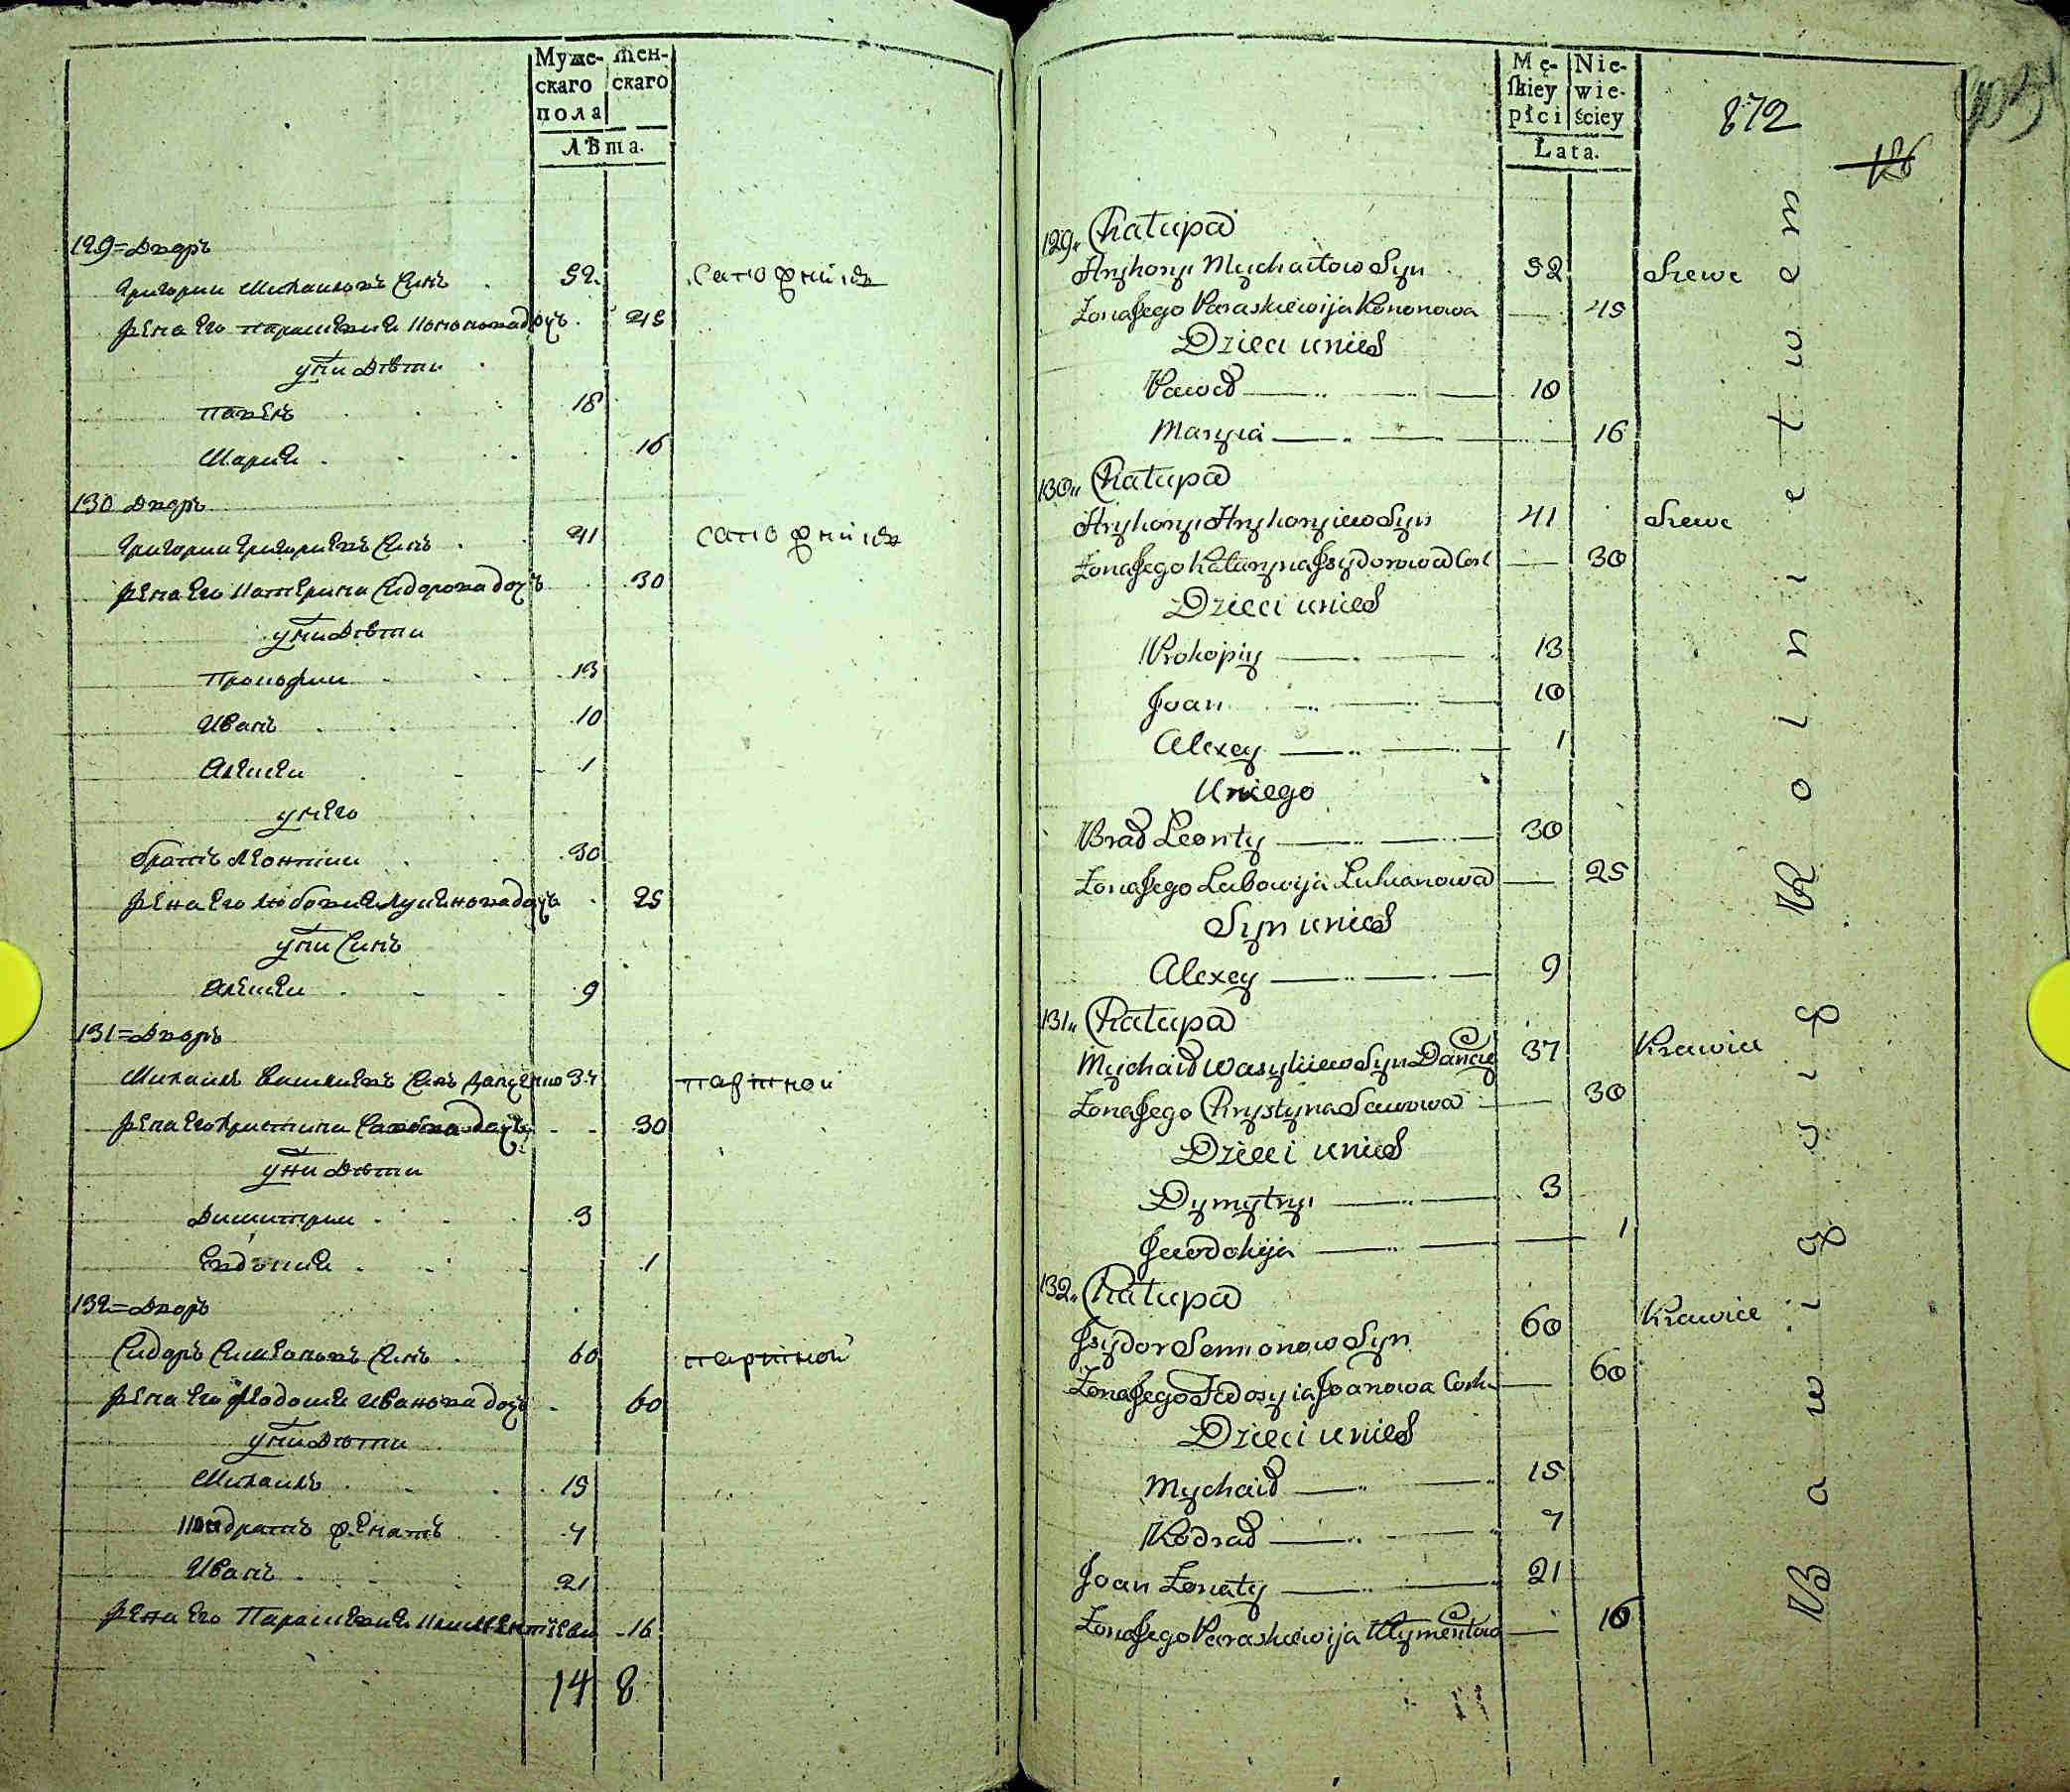 Муже-
скаго
пола
Жен-
скаго
Лѣта.
129=Дворъ
Григории Михаиловъ Синъ 52. Сапожникъ
Жена Его Параскевия Кононова доч. 45
у ни Дѣти
Павелъ 18
Мария 16
130 Дворъ
Григории Григориевъ Синъ 41 сапожникъ
Жена Его Катерина Сидорова доч 30
у ни Дѣти
Прокофии 13
Иванъ 10
Алексеи 1
у него
братъ Леонтии 30
Жена Его Любовия Лукянова доч 25
у ни Синъ
Алексеи 9
131=Дворъ
Михаилъ Василиевъ Синъ 37 партной
Жена Его Христина Савова доч. 30
у ни Дѣти
Димитрии 3
Евдокия 1
132=Дворъ
Сидоръ Симеоновъ Синъ 60 партной
Жена Его Федосия Иванова доч 60
у ни Дѣти
Михаилъ 15
Кондратъ женатъ 7
Иванъ 21
Жена Его Параскевия 16
14 8
Mę-
ſkiey
płci
Nie-
wie-
ściey
Lata.
872
126
129. Chałupa
Hryhoryi Mychaiłow Syn 52 Szewc
Zona Jego Paraskiewija Kononowa 45
Dzieci u nich
Paweł 10
Maryia 16
130. Chałupa
Hryhoryi Hryhoryiew Syn 41 Szewc
Zona Jego Kataryna Jsydorowa Cor 30
Dzieci u nich
Prokopiy 13
Joan 10
Alexey 1
U niego
Brad Leonty 30
Zona Jego Lubowija Lukianowa 25
Syn u nich
Alexey 9
131. Chałupa
Mychaił Wasyliew Syn 37 Krawiec
Zona Jego Chrystyna Sawowa 30
Dzieci u nich
Dymytryi 3
Jewdokija 1
132. Chałupa
Jsydor Semionow Syn 60 Krawiec
Zona Jego Fedosyia Joanowa Corka 60
Dzieci u nich
Mychaił 15
Kodrad 7
Joan Zonaty 21
Zona Jego Paraskiewija Klymentow 16
Bawią się Rolnictwem